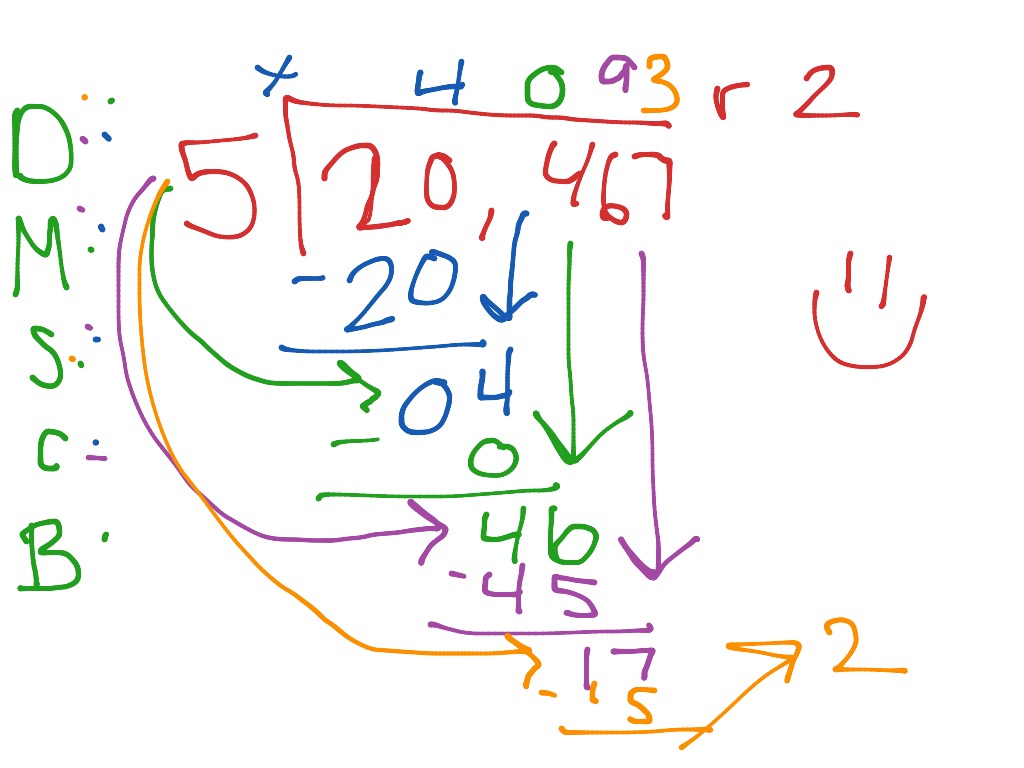 x 4 0 9 3 r 2
D 5 20,467
M - 20
S 04
C - 0
B 46
- 45
17 2
- 15